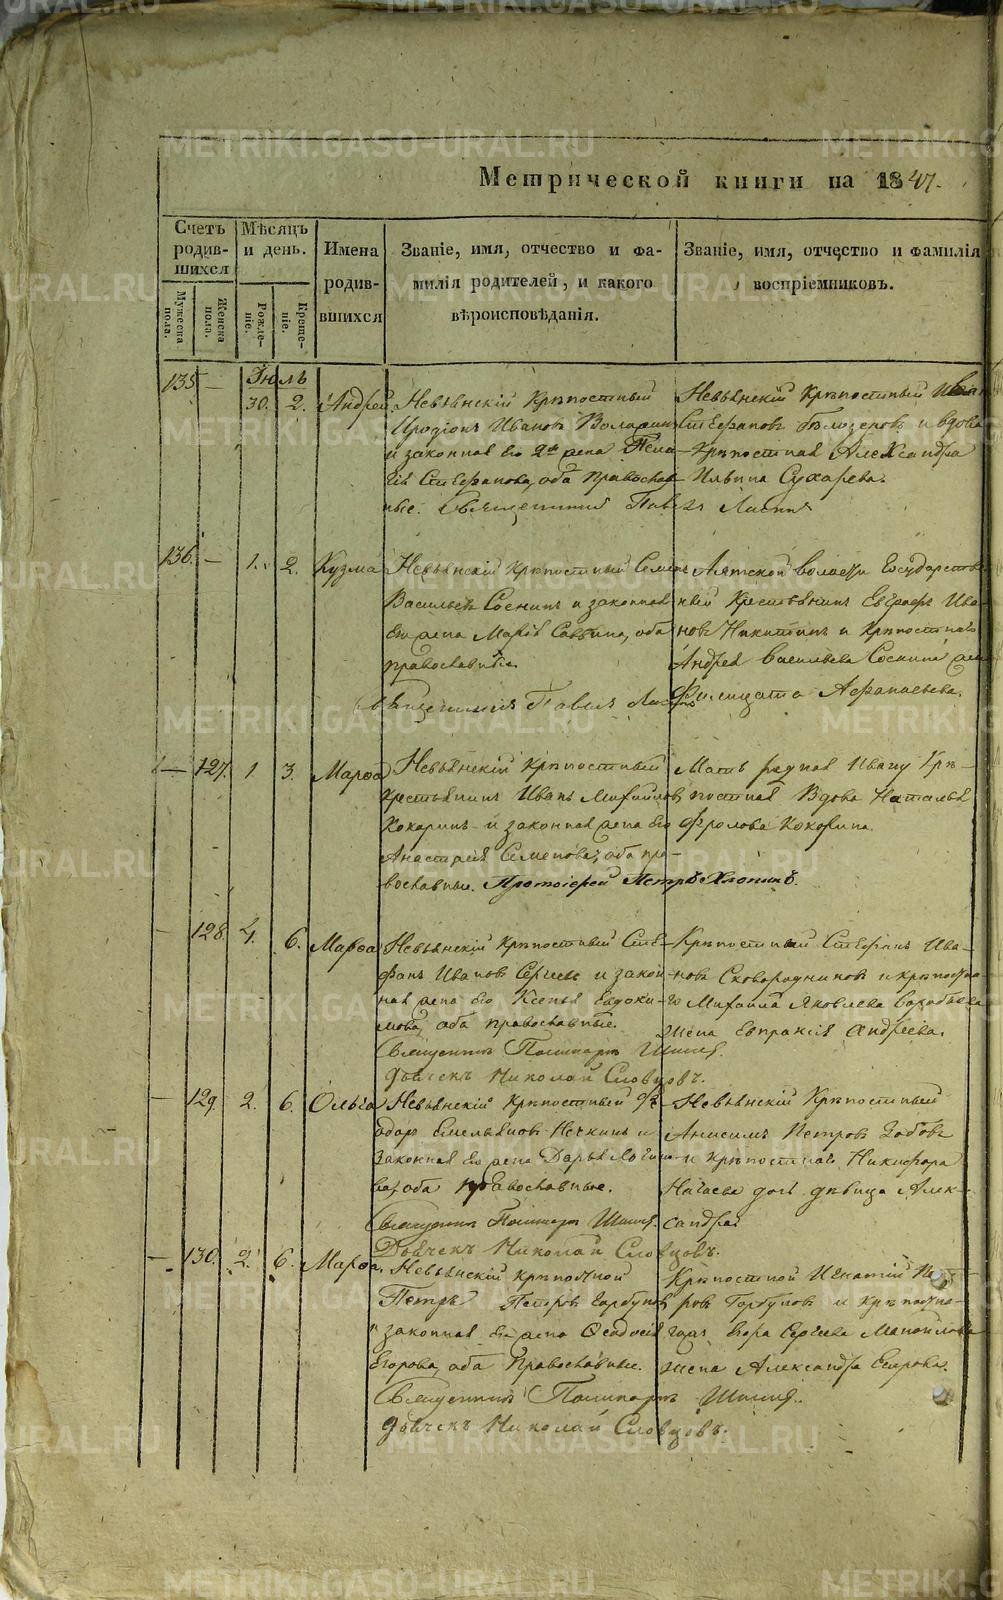 METRIKI.GASO-URAL.RU
Метрической книги на 1847.
Счетъ родив-шихся
Мужеска пола.
Женска пола.
Мѣсяцъ и день.
Рожде-ніе.
Креще-ніе.
Имена родив-шихся
Званіе, имя, отчество и фа-
милія родителей, и какого
вѣроисповѣданія.
Званіе, имя, отчество и фамилія
воспріемниковъ.
135 — Іюль 30. 2. Андрей
Невьянскій Крѣпостный
Иродіонъ Ивановъ
и законная его 2я жена Пела-
гія Стефанова, оба Православ-
ные. Священникъ Павелъ
Невьянскій Крѣпостный Иван
Стефановъ Бѣлозеровъ и вдова
Крѣпостная Александра
Ильина Сухарева.
136. — 1. 2. Кузма
Невьянскій Крѣпостный Семенъ
Васильевъ Соснинъ и законная
его жена Марія Саввина, оба
православные.
Священникъ Павелъ
Аятской волости Государстве-
ный Крестьянинъ Евграфъ Ива-
новъ Никитинъ и Крѣпостнаго
Андрея Васильева Соснина жена
Филицата Афанасьева.
— 127. 1 3. Марѳа
Невьянскій Крѣпостный
Крестьянинъ Иванъ Михайловъ
Кокаринъ и законная жена его
Анастасія Семенова, оба пра-
вославные. Протоіерей Петръ Хлопинъ.
Мать родная Ивану Крѣ-
постная Вдова Наталья
Фролова Кокарина.
— 128. 4. 6. Марѳа
Невьянскій Крѣпостный Сте-
фанъ Ивановъ Сергѣевъ и закон-
ная жена его Ксенья Евдоки-
мова, оба православные.
Священникъ
Дьячекъ Николай Словцовъ.
Крѣпостный Стефанъ Ива-
новъ Сковородниковъ и крѣпостна-
го Михаила Яковлева
жена Евпраксія Андреева.
— 129. 2. 6. Ольга
Невьянскій Крѣпостный Ѳе-
одоръ Емельяновъ Нечкинъ и
Законная его жена Дарья Логино-
ва, оба православные.
Священникъ
Дьячекъ Николай Словцовъ.
Невьянскій Крѣпостный
Анисимъ Петровъ Зобовъ
и Крѣпостнаго Никифора
дочь дѣвица Алек-
сандра
— 130. 2. 6. Марѳа.
Невьянскій крѣпостной
Петръ Петровъ Горбуновъ
и законная его жена Ѳеодосія
Егорова, оба Православные.
Священникъ
Дьячекъ Николай Словцовъ.
Крѣпостной Игнатій Пет-
ровъ Горбуновъ и крѣпостна-
го Егора Сергѣева
жена Александра Егорова.